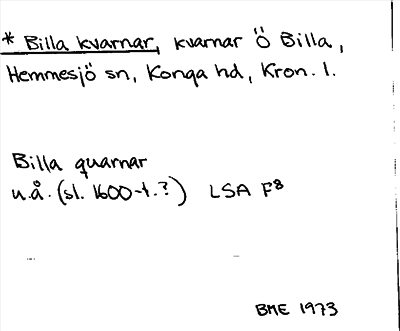 * Billa kvarnar, kvarnar Ö Billa,
Hemmesjö sn, Konga hd, Kron. l.
Billa quarnar
u.å. (sl. 1600-t.?) LSA F8
BME 1973